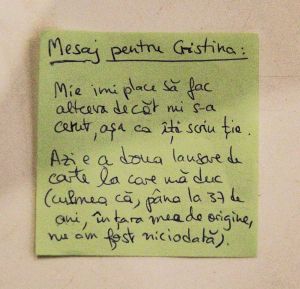 Mesaj pentru Cristina:
Mie îmi place să fac
altceva decât mi s-a
cerut, așa că îți scriu ție.
Azi e a doua lansare de
carte la care mă duc
(culmea că, până la 37 de
ani, în țara mea de origine,
nu am fost niciodată).